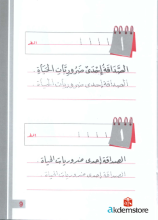 أ
الصَّدَاقَةُ إِحْدَى ضَرُورِيَّاتِ الحَيَاةِ
الصَّدَاقَةُ إِحْدَى ضَرُورِيَّاتِ الحَيَاةِ
أ
الصداقة إحدى ضروريات الحياة
الصداقة إحدى ضروريات الحياة
akdemstore